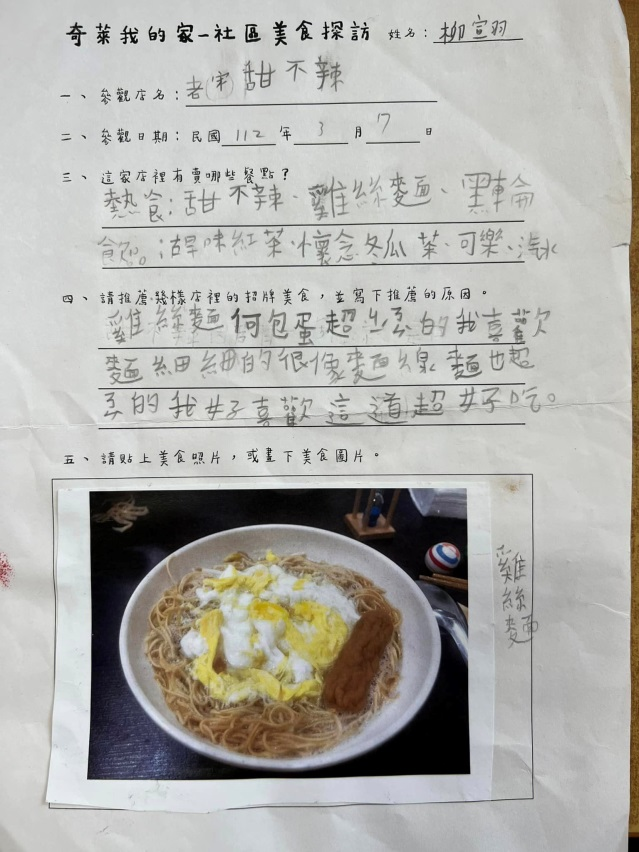 奇萊我的家-社區美食探訪 姓名：柳宣羽
一、參觀店名：老(宋)甜不辣
二、參觀日期：民國112年3月7日
三、這家店裡有賣哪些餐點？
熱食：甜不辣、雞絲麵、黑輪
飲。：古早味紅茶、懷念冬瓜茶、可樂、汽水
四、請推薦幾樣店裡的招牌美食，並寫下推薦的原因。
雞絲麵 何包蛋超 的我喜歡
麵細細的很像麵線 麵也超
的我好喜歡這道超好吃。
五、請貼上美食照片，或畫下美食圖片。
雞絲麵